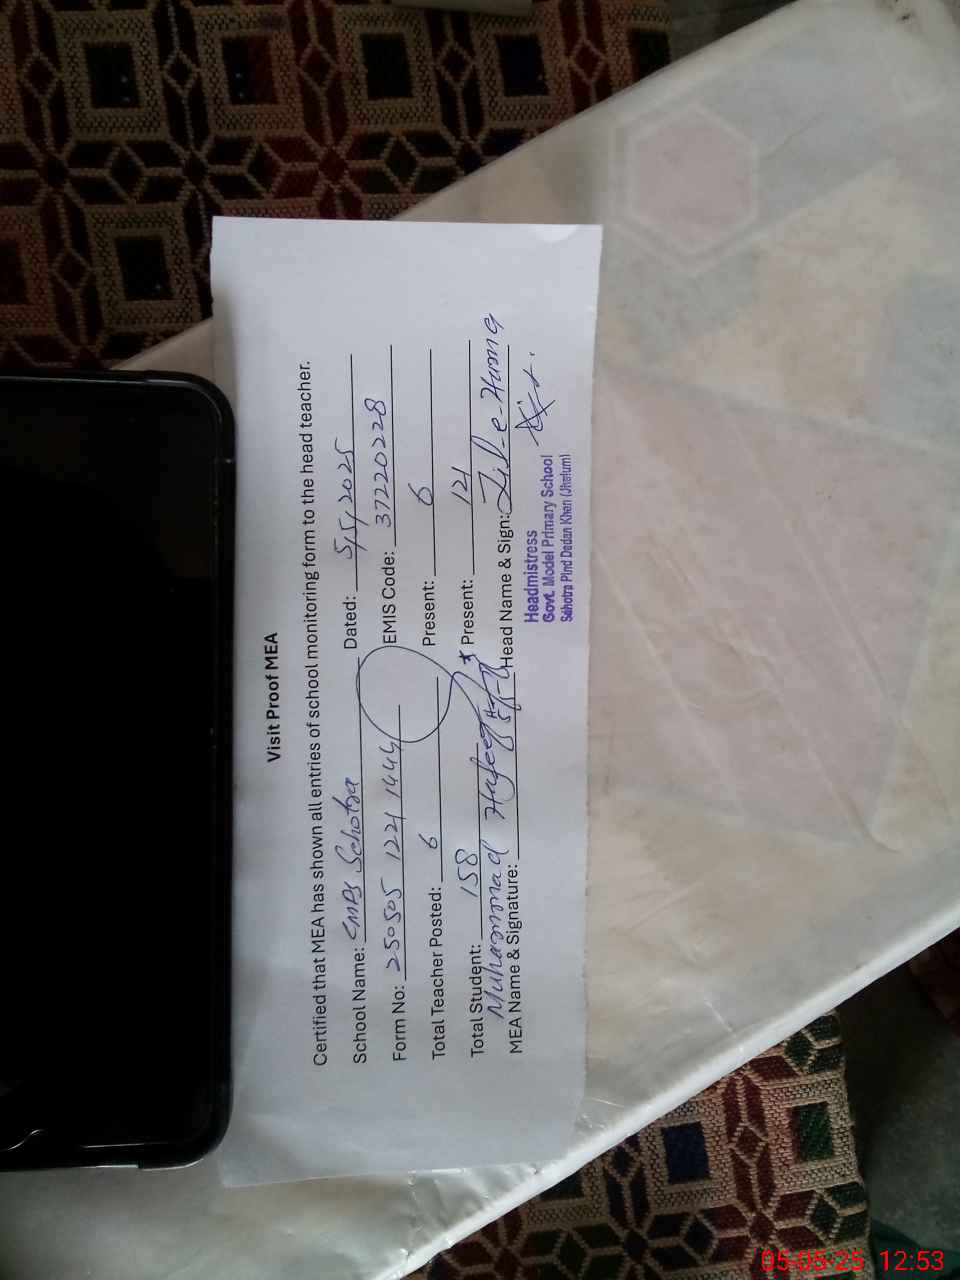 Visit Proof MEA
Certified that MEA has shown all entries of school monitoring form to the head teacher.
School Name: GMPS Sehotra Dated: 5/5/2025
Form No: 250505 1221 1444 EMIS Code: 37220228
Total Teacher Posted: 6 Present: 6
Total Student: 158 Present: 121
MEA Name & Signature: Muhammad Hafeez Head Name & Sign: Zil-e-Huma
Headmistress
Govt. Model Primary School
Sehotra Pind Dadan Khan (Jhelum)
05-05-25 12:53